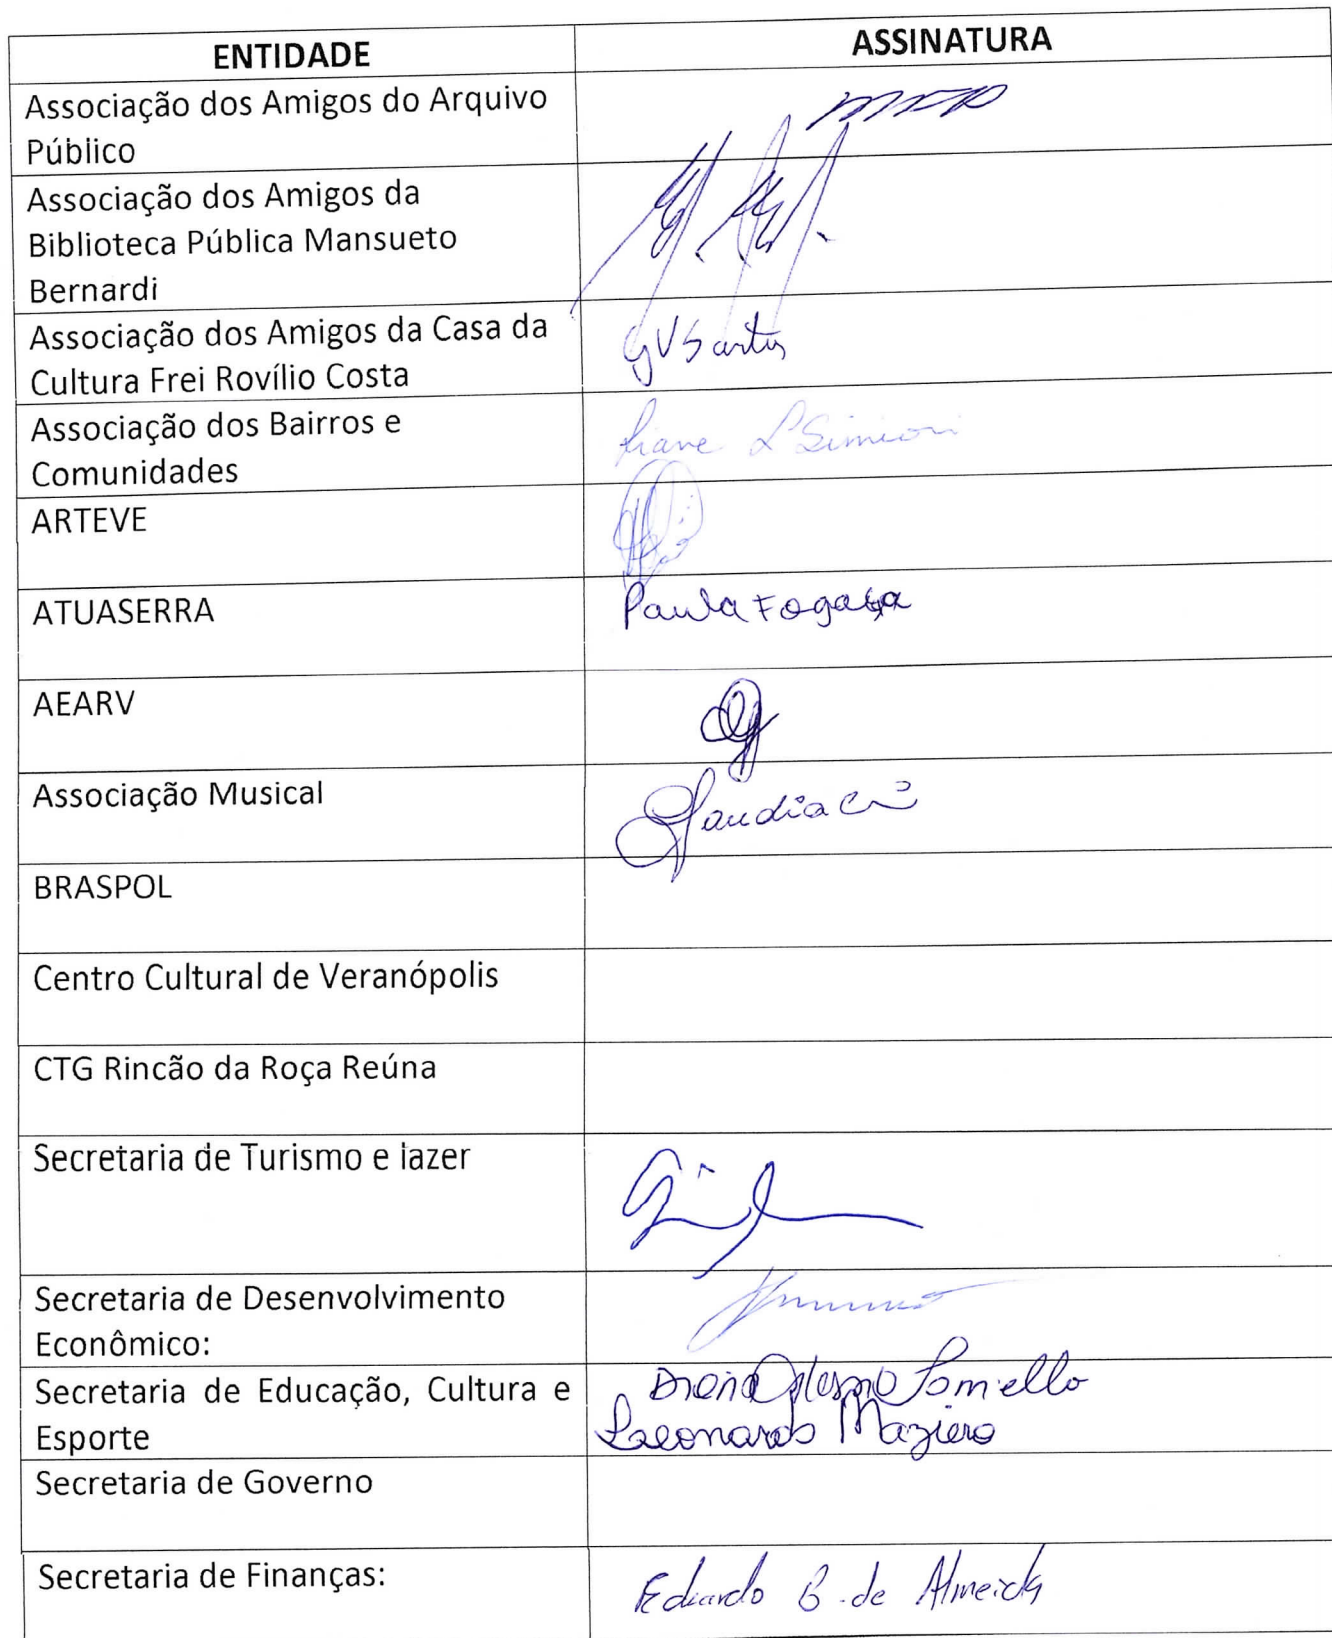 ENTIDADE ASSINATURA
Associação dos Amigos do Arquivo
Público
Associação dos Amigos da
Biblioteca Pública Mansueto
Bernardi
Associação dos Amigos da Casa da
Cultura Frei Rovílio Costa
GVSantos
Associação dos Bairros e
Comunidades
Liane L Simioni
ARTEVE
ATUASERRA
Paula Fogaça
AEARV
Associação Musical
Claudia
BRASPOL
Centro Cultural de Veranópolis
CTG Rincão da Roça Reúna
Secretaria de Turismo e lazer
Secretaria de Desenvolvimento
Econômico:
Secretaria de Educação, Cultura e
Esporte
Leonardo Maziero
Secretaria de Governo
Secretaria de Finanças:
Eduardo B. de Almeida